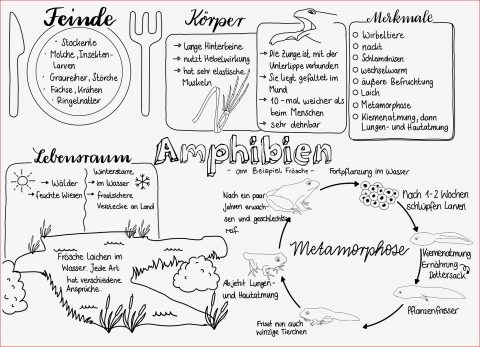 Feinde
- Stockente
- Molche, Insekten-
Larven
- Graureiher, Störche
- Füchse, Krähen
- Ringelnatter
Körper
→ Lange Hinterbeine
→ nutzt Hebelwirkung
→ hat sehr elastische
Muskeln
→ Die Zunge ist mit der
Unterlippe verbunden
→ Sie liegt gefaltet im
Mund
→ 10-mal weicher als
beim Menschen
→ sehr dehnbar
Merkmale
Wirbeltiere
nackt
Schleimdrüsen
wechselwarm
äußere Befruchtung
Laich
Metamorphose
Kiemenatmung, dann
Lungen- und Hautatmung
Amphibien
- am Beispiel Frösche -
Lebensraum
→ Wälder
→ feuchte Wiesen
Winterstarre
→ im Wasser
→ frostsichere
Verstecke an Land
Frösche laichen im
Wasser. Jede Art
hat verschiedene
Ansprüche.
Metamorphose
Fortpflanzung im Wasser
Nach 1-2 Wochen
schlüpfen Larven
Kiemenatmung
Ernährung-
Dottersack
Pflanzenfresser
Frisst nun auch
winzige Tierchen
Ab jetzt Lungen-
und Hautatmung
Nach ein paar
Jahren erwach-
sen und geschlechts-
reif.